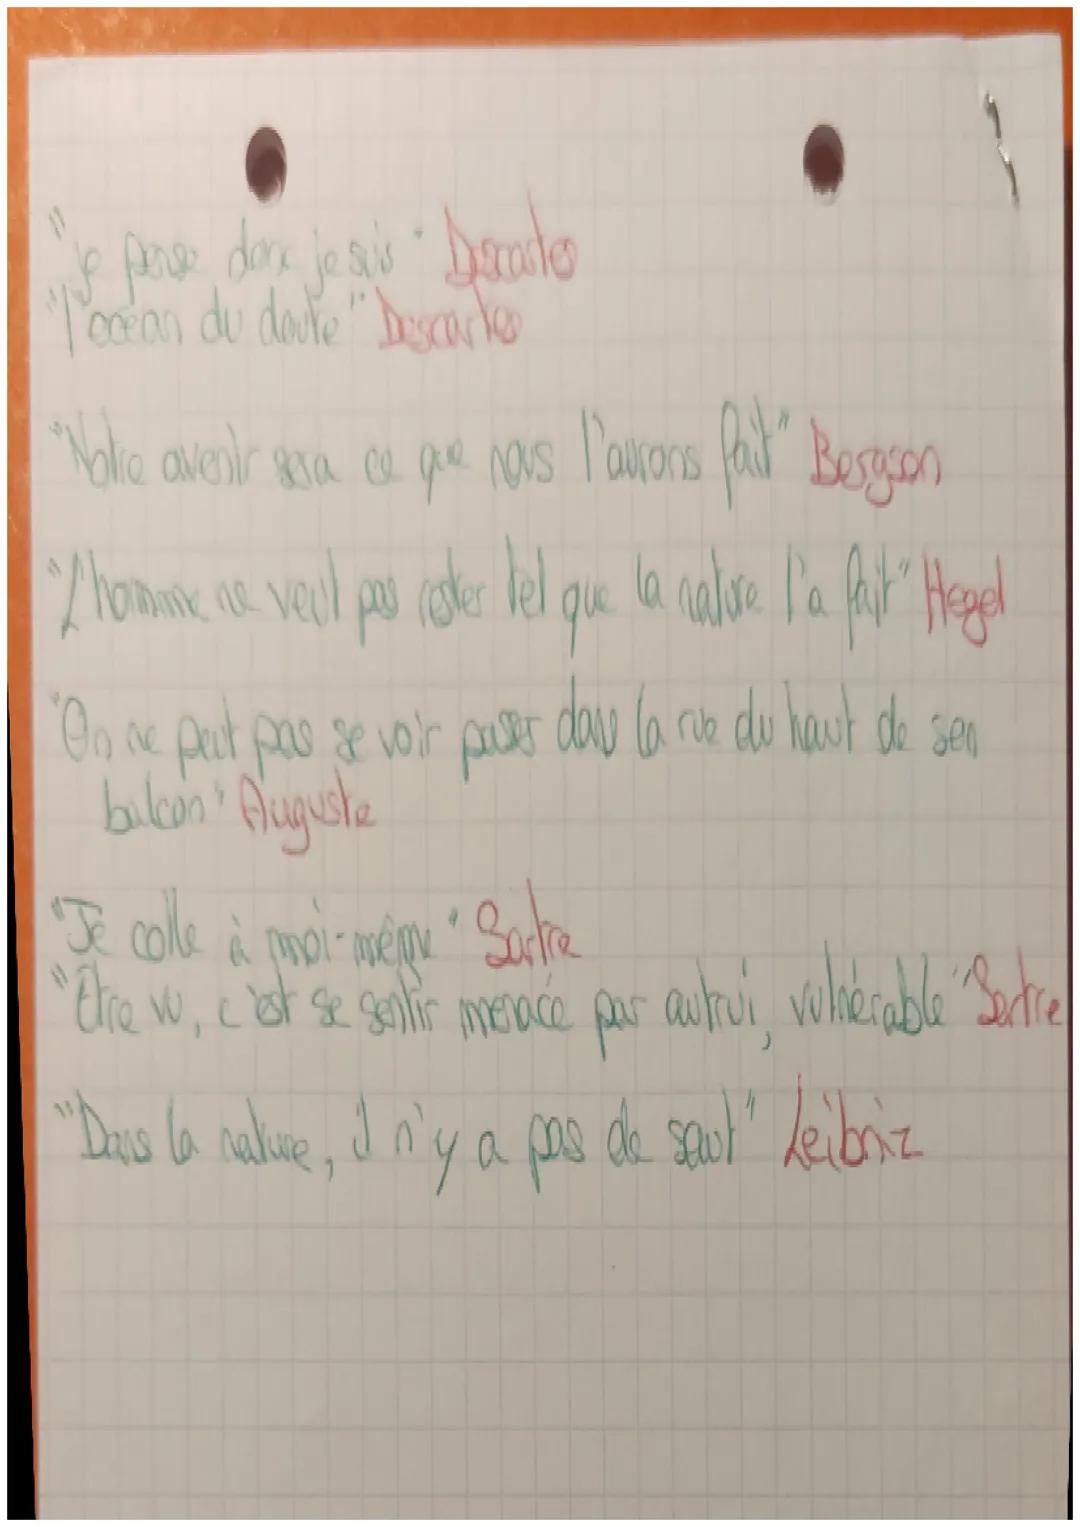 "je pense donc je suis" Descartes
"l'océan du doute" Descartes
"Notre avenir sera ce que nous l'aurons fait" Bergson
"L'homme ne veut pas rester tel que la nature l'a fait" Hegel
"On ne peut pas se voir passer dans la rue du haut de son
balcon" Auguste
"Je colle à moi-même" Sartre
"Être vu, c'est se sentir menacé par autrui, vulnérable" Sartre
"Dans la nature, il n'y a pas de saut" Leibniz